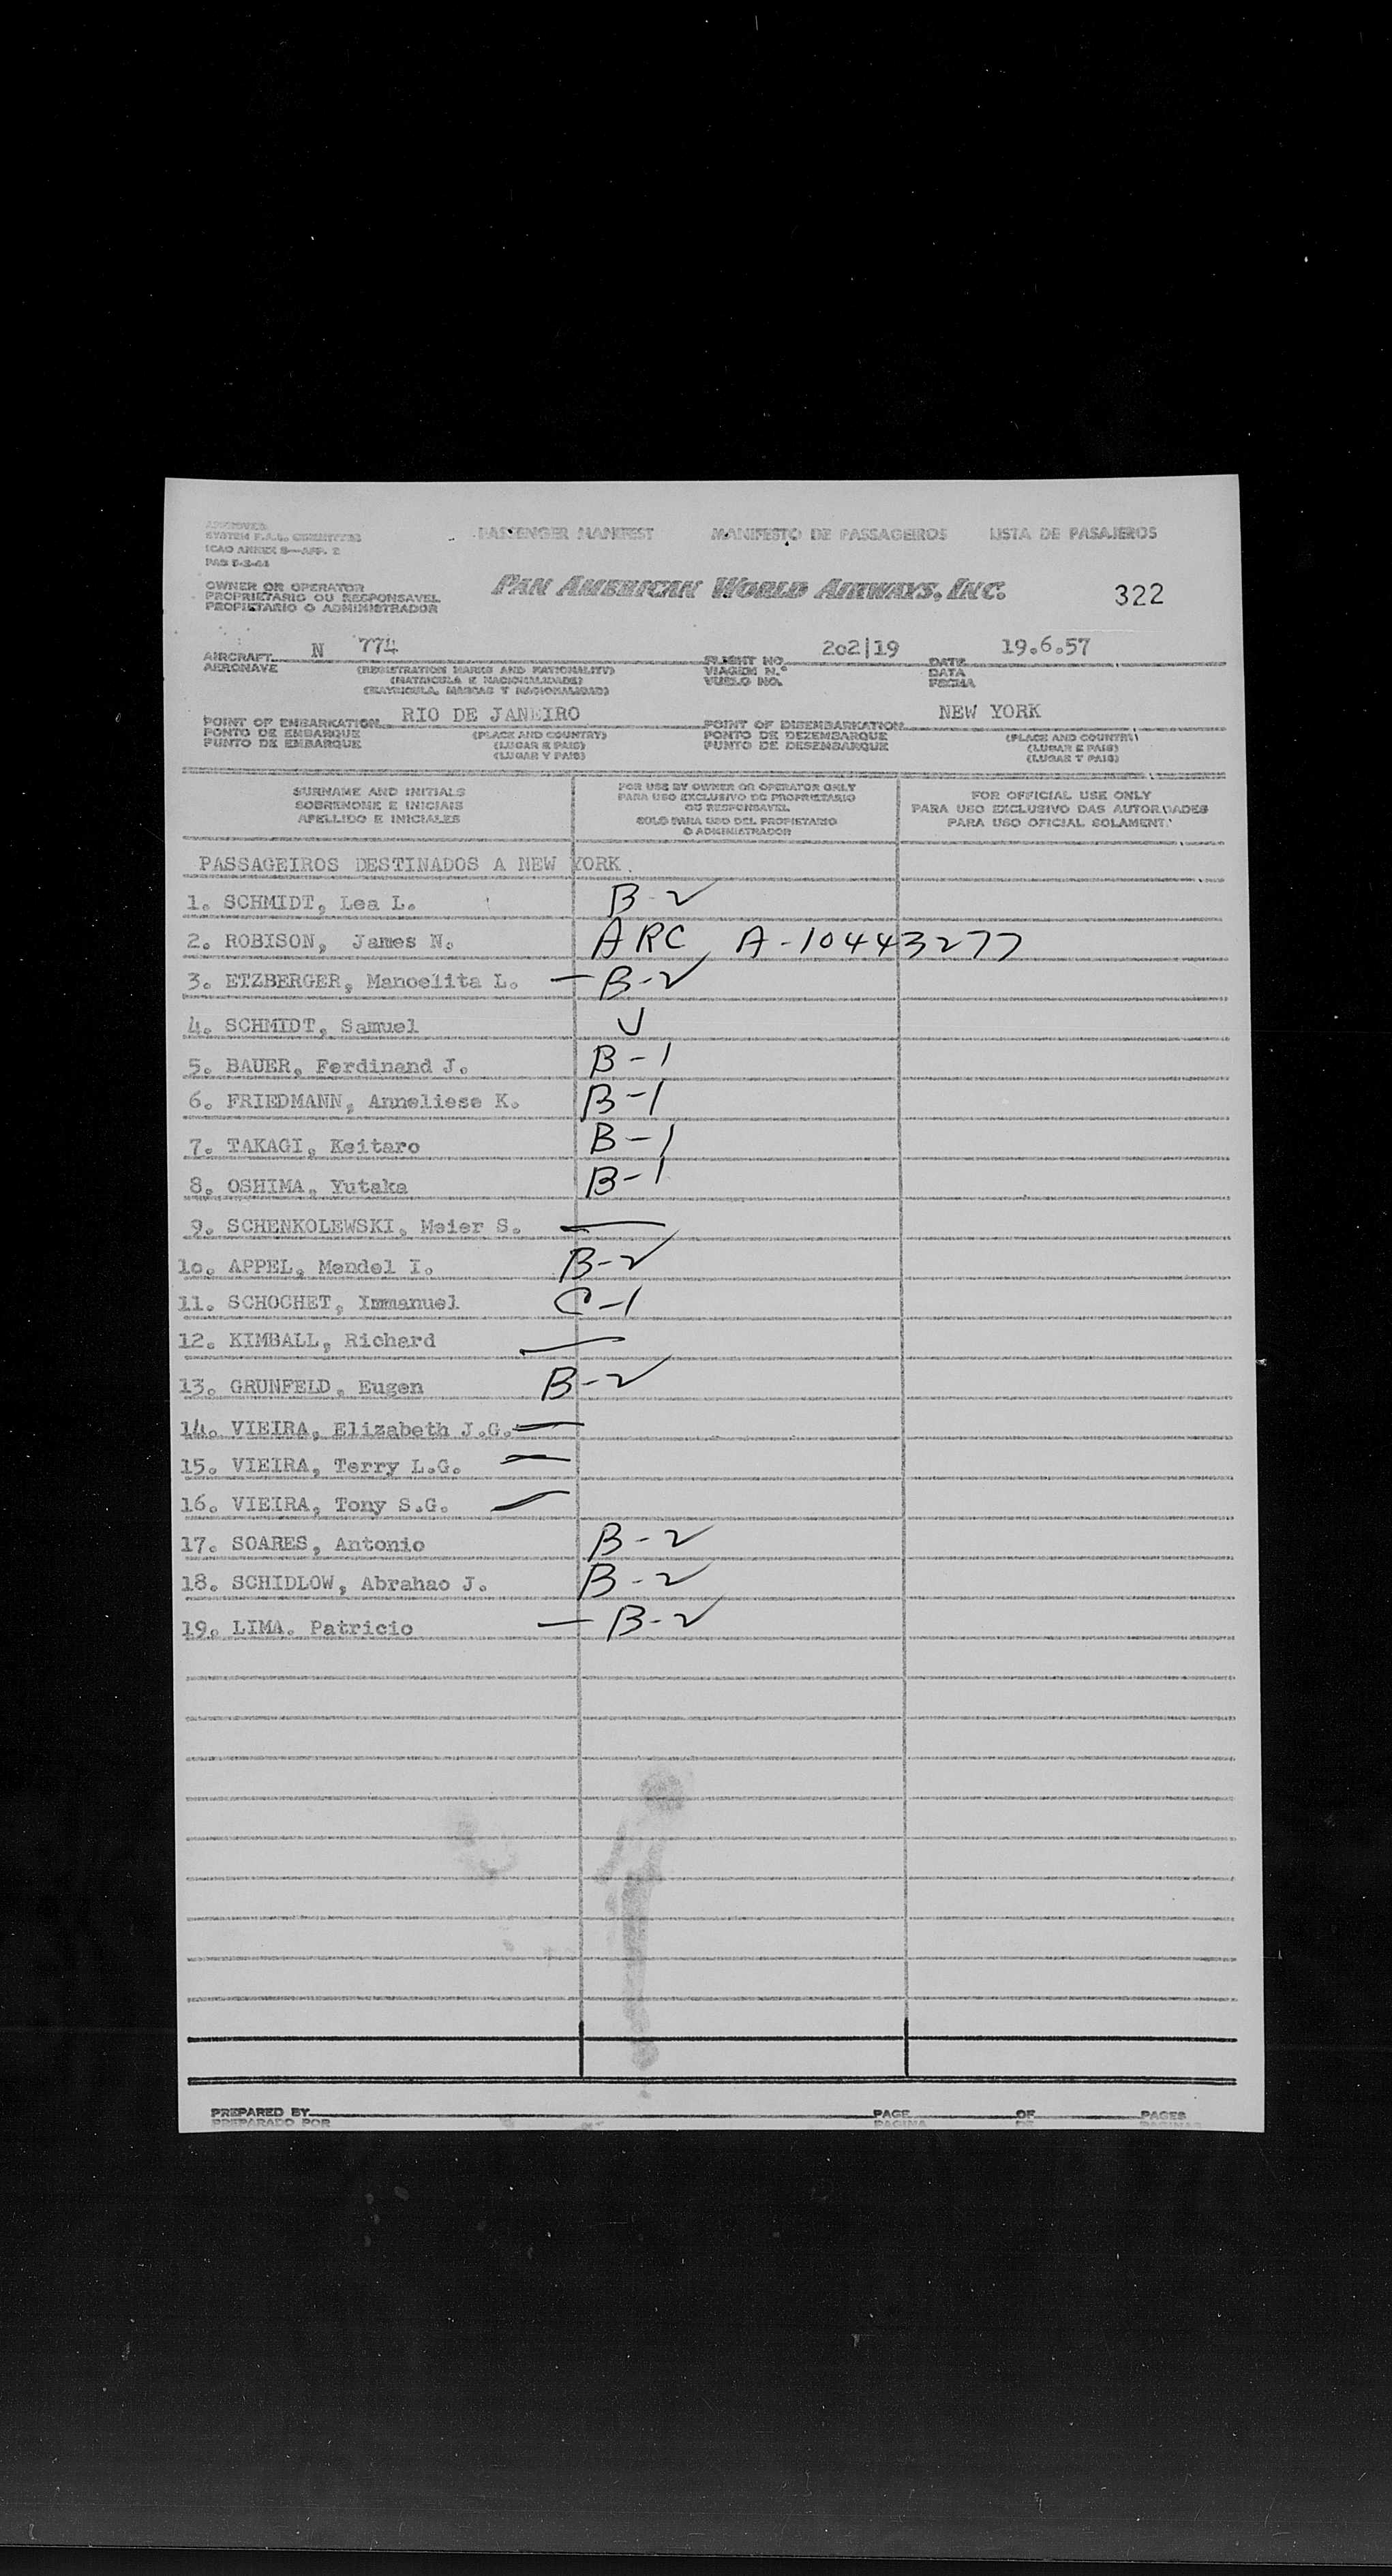 APPROVED
SYSTEM F.A.L. COMMITTEE
ICAO ANNEX 9—APP. 2
PASSENGER MANIFEST MANIFESTO DE PASSAGEIROS LISTA DE PASAJEROS
OWNER OR OPERATOR
PROPRIETARIO OU RESPONSAVEL
PROPIETARIO O ADMINISTRADOR
PAN AMERICAN WORLD AIRWAYS, INC. 322
AIRCRAFT N 774 FLIGHT NO. 202|19 DATE 19.6.57
AERONAVE (REGISTRATION MARKS AND NATIONALITY) VIAGEM N.° DATA
(MATRICULA E NACIONALIDADE) VUELO NO. FECHA
(MATRICULA, MARCAS Y NACIONALIDAD)
POINT OF EMBARKATION RIO DE JANEIRO POINT OF DISEMBARKATION NEW YORK
PONTO DE EMBARQUE (PLACE AND COUNTRY) PONTO DE DEZEMBARQUE (PLACE AND COUNTRY)
PUNTO DE EMBARQUE (LUGAR E PAIS) PUNTO DE DESEMBARQUE (LUGAR E PAIS)
(LUGAR Y PAIS) (LUGAR Y PAIS)
SURNAME AND INITIALS
SOBRENOME E INICIAIS
APELLIDO E INICIALES
FOR USE BY OWNER OR OPERATOR ONLY
PARA USO EXCLUSIVO DO PROPRIETARIO
OU RESPONSAVEL
SOLO PARA USO DEL PROPIETARIO
O ADMINISTRADOR
FOR OFFICIAL USE ONLY
PARA USO EXCLUSIVO DAS AUTORIDADES
PARA USO OFICIAL SOLAMENT.
PASSAGEIROS DESTINADOS A NEW YORK.
1. SCHMIDT, Lea L. B-2
2. ROBISON, James N. ARC A-10443277
3. ETZBERGER, Manoelita L. — B-2
4. SCHMIDT, Samuel
5. BAUER, Ferdinand J. B-1
6. FRIEDMANN, Anneliese K. B-1
7. TAKAGI, Keitaro B-1
8. OSHIMA, Yutaka B-1
9. SCHENKOLEWSKI, Meier S. —
10. APPEL, Mendel I. B-2
11. SCHOCHET, Immanuel C-1
12. KIMBALL, Richard —
13. GRUNFELD, Eugen B-2
14. VIEIRA, Elizabeth J.G. —
15. VIEIRA, Terry L.G. —
16. VIEIRA, Tony S.G. —
17. SOARES, Antonio B-2
18. SCHIDLOW, Abrahao J. B-2
19. LIMA. Patricio — B-2
PREPARED BY PAGE OF PAGES
PREPARADO POR PAGINA DE PAGINAS